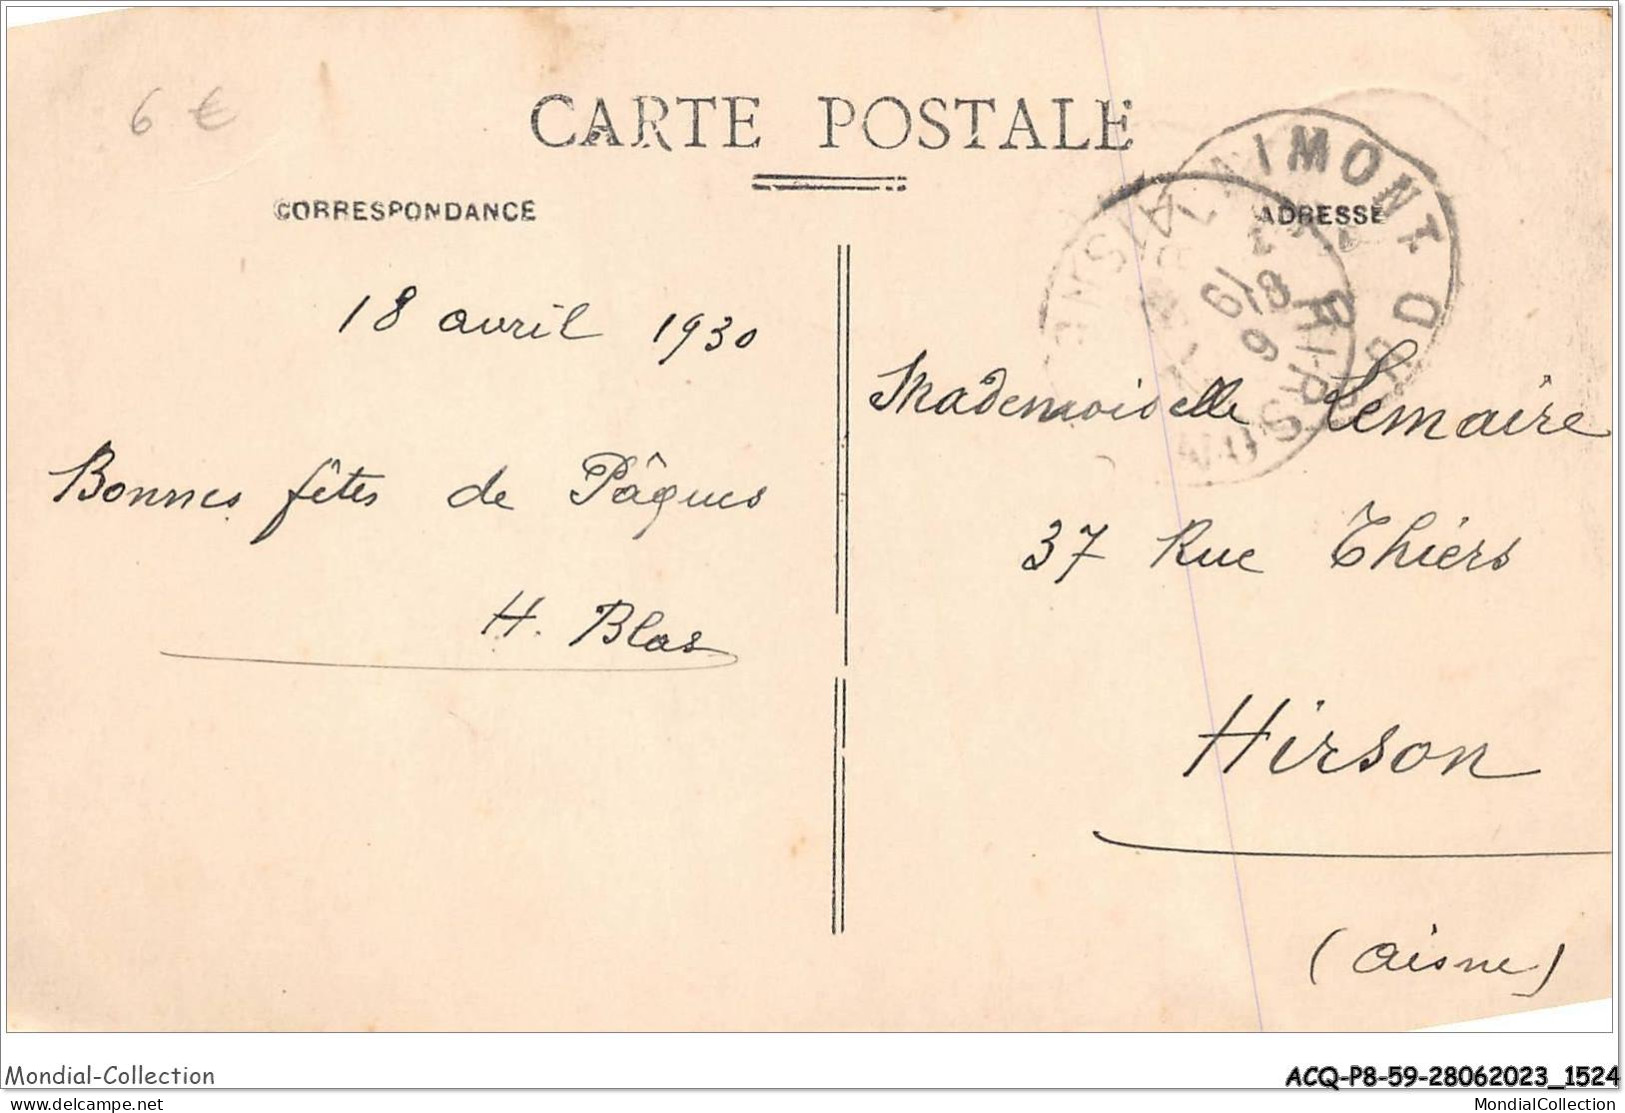 6 €
CARTE POSTALE
CORRESPONDANCE
ADRESSE
18 avril 1930
Bonnes fêtes de Pâques
H. Blas
Mademoiselle Lemaire
37 Rue Thiers
Hirson
(Aisne)
Mondial-Collection
ACQ-P8-59-28062023_1524
delcampe.net
MondialCollection